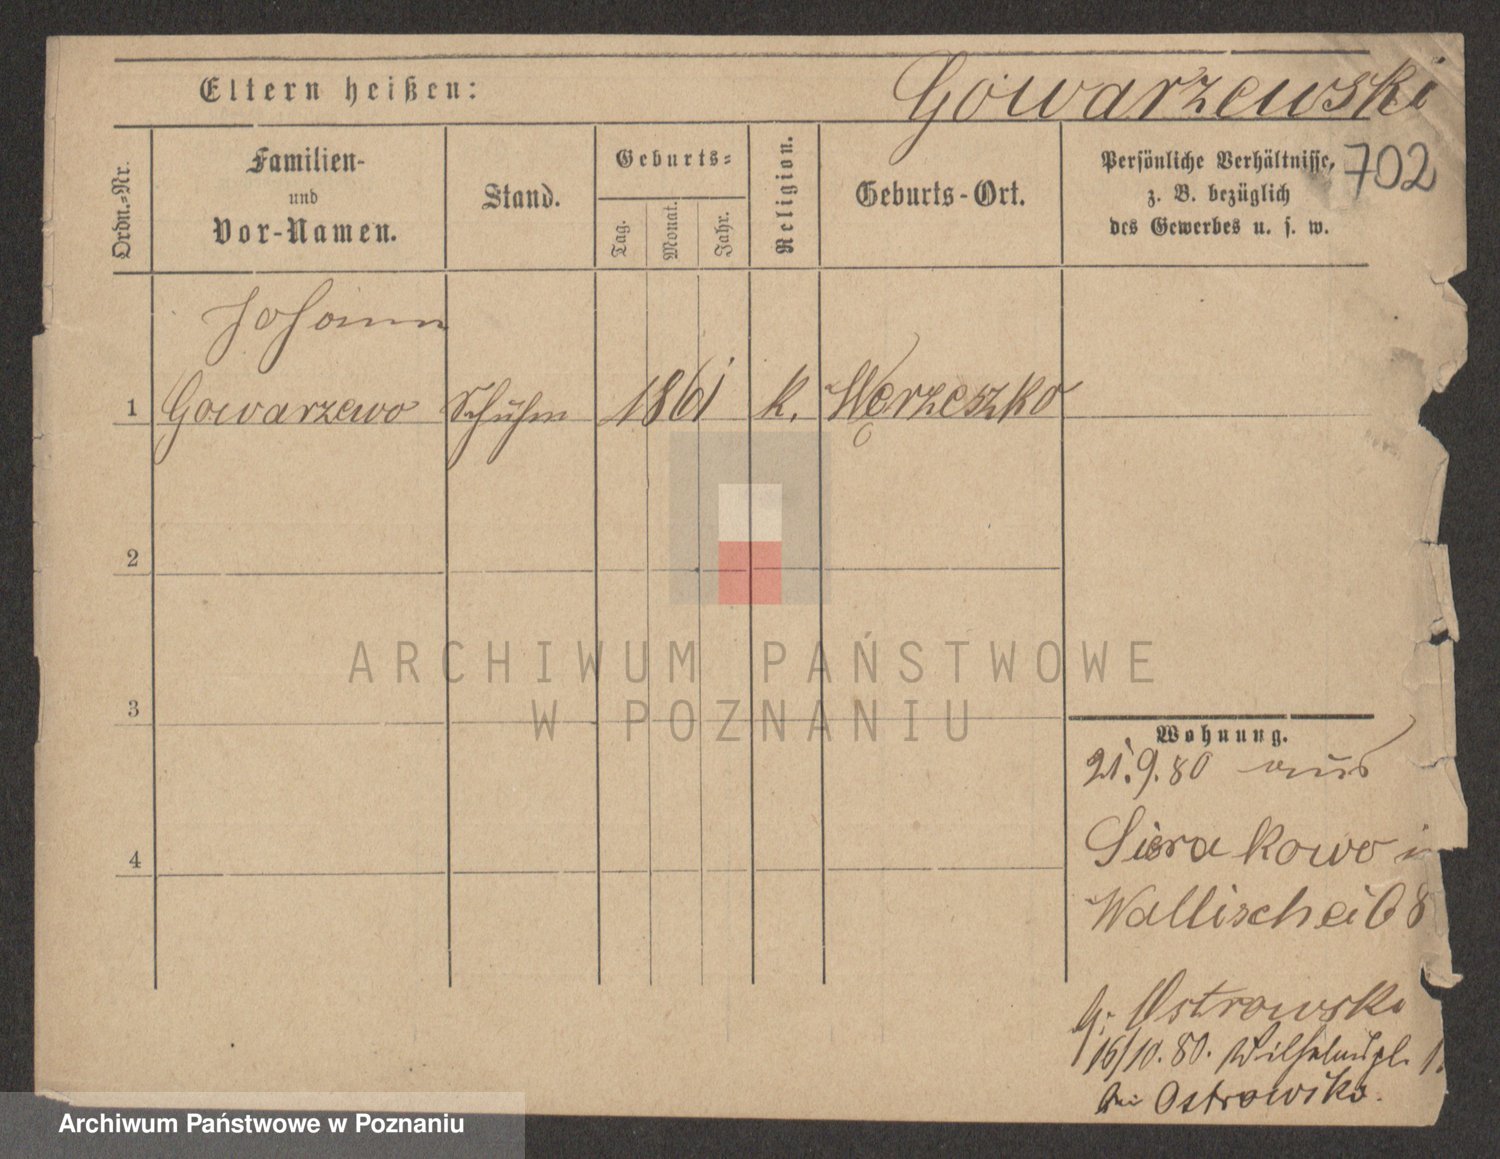 Eltern heißen:
Gowarzewski
Ordn.-Nr.
Familien-
und
Vor-Namen.
Stand.
Geburts-
Tag.
Monat.
Jahr.
Religion.
Geburts-Ort.
Persönliche Verhältnisse,
z. B. bezüglich
des Gewerbes u. s. w.
702
Johann
1 Gowarzewo Schuhm 1861 k. Werzeszko
2
3
4
ARCHIWUM PAŃSTWOWE
W POZNANIU
Wohnung.
21.9.80 aus
Sierakowo in
Wallischei 68
Ostrowski
16/10. 80. Wilhelmspl.
bei Ostrowska.
Archiwum Państwowe w Poznaniu